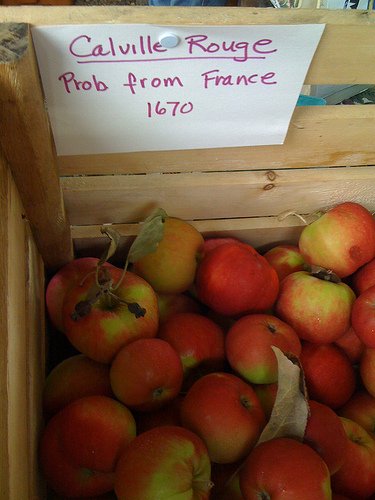 Calville Rouge
Prob from France
1670